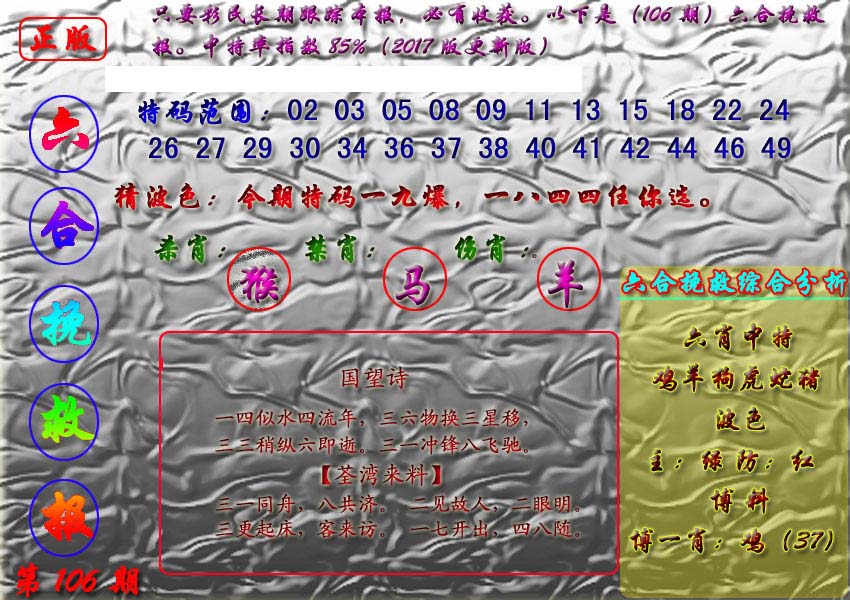 正版
只要彩民长期跟踪本报，必有收获。以下是（106期）六合挽救
报。中特率指数85%（2017版更新版）
六合挽救报
特码范围：02 03 05 08 09 11 13 15 18 22 24
26 27 29 30 34 36 37 38 40 41 42 44 46 49
猜波色：今期特码一九爆，一八四四任你选。
杀肖：猴 禁肖：马 伤肖：羊
国望诗
一四似水四流年，三六物换三星移，
三三稍纵六即逝。三一冲锋八飞驰。
【荃湾来料】
三一同舟，八共济。 二见故人，二眼明。
三更起床，客来访。 一七开出，四八随。
六合挽救综合分析
六肖中特
鸡羊狗虎蛇猪
波色
主：绿防：红
博料
博一肖：鸡（37）
第106期